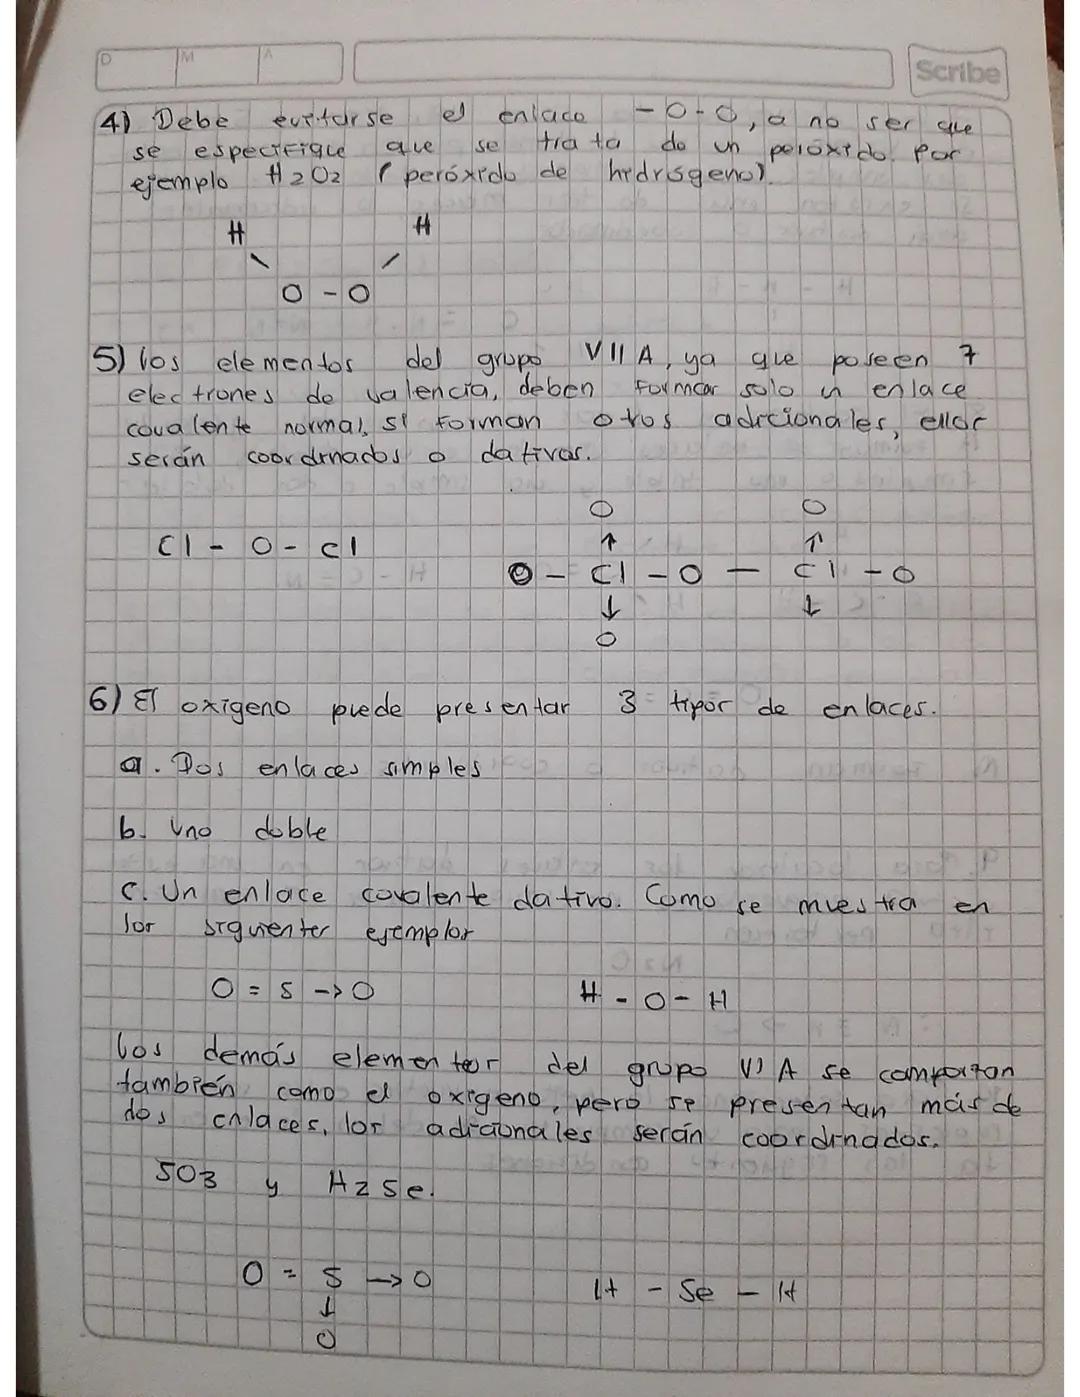 D M A Scribe
4) Debe evitarse el enlace -O-O, a no ser que
se especifique que se trata de un peróxido. Por
ejemplo H2O2 (peróxido de hidrógeno).
H H
\ /
O - O
5) los elementos del grupo VII A, ya que poseen 7
electrones de valencia, deben formar solo un enlace
covalente normal, si forman otros adicionales, ellos
serán coordinados o dativos.
O O
↑ ↑
Cl - O - Cl
O - Cl - O - Cl - O
↓ ↓
O
6) El oxígeno puede presentar 3 tipos de enlaces.
a. Dos enlaces simples
b. Uno doble
c. Un enlace covalente dativo. Como se muestra en
los siguientes ejemplos
O = S -> O H - O - H
los demás elementos del grupo VI A se comportan
también como el oxígeno, pero se presentan más de
dos enlaces, los adicionales serán coordinados.
SO3 y H2Se.
O = S -> O H - Se - H
↓
O